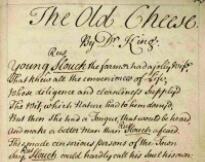 The Old Cheese.
By Dr. King.
Young Slouch the farmer had a jolly Wife,
That knew all the conveniences of Life,
Whose diligence and cleanliness supply'd
The Wit, which Nature had to him deny'd,
But then she had a Tongue, that would be heard
And make a better Man than Slouch afeard.
This made censorious persons of the Town
Say, Slouch could hardly call his Soul his own.